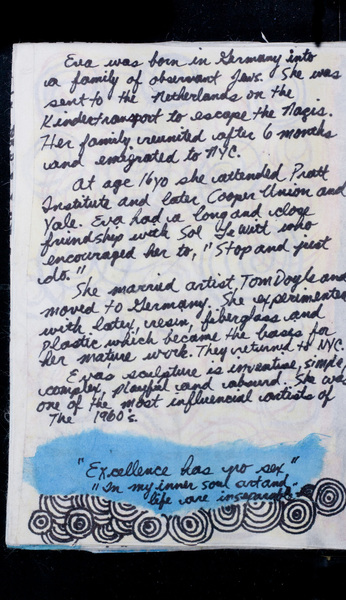 Eva was born in Germany into
a family of observant Jews. She was
sent to the Netherlands on the
Kindertransport to escape the Nazis.
Her family reunited after 6 months
and emigrated to NYC.
At age 16yo she attended Pratt
Institute and later Cooper Union and
Yale. Eva had a long and close
friendship with Sol LeWitt who
encouraged her to, "Stop and just
do."
She married artist, Tom Doyle and
moved to Germany. She experimented
with latex, resin, fiberglass and
plastic which became the bases for
her mature work. They returned to NYC.
Eva's sculpture is inventive, simple,
complex, playful and absurd. She was
one of the most influencial artists of
The 1960's.
"Excellence has no sex"
"In my inner soul art and
life are inseparable"